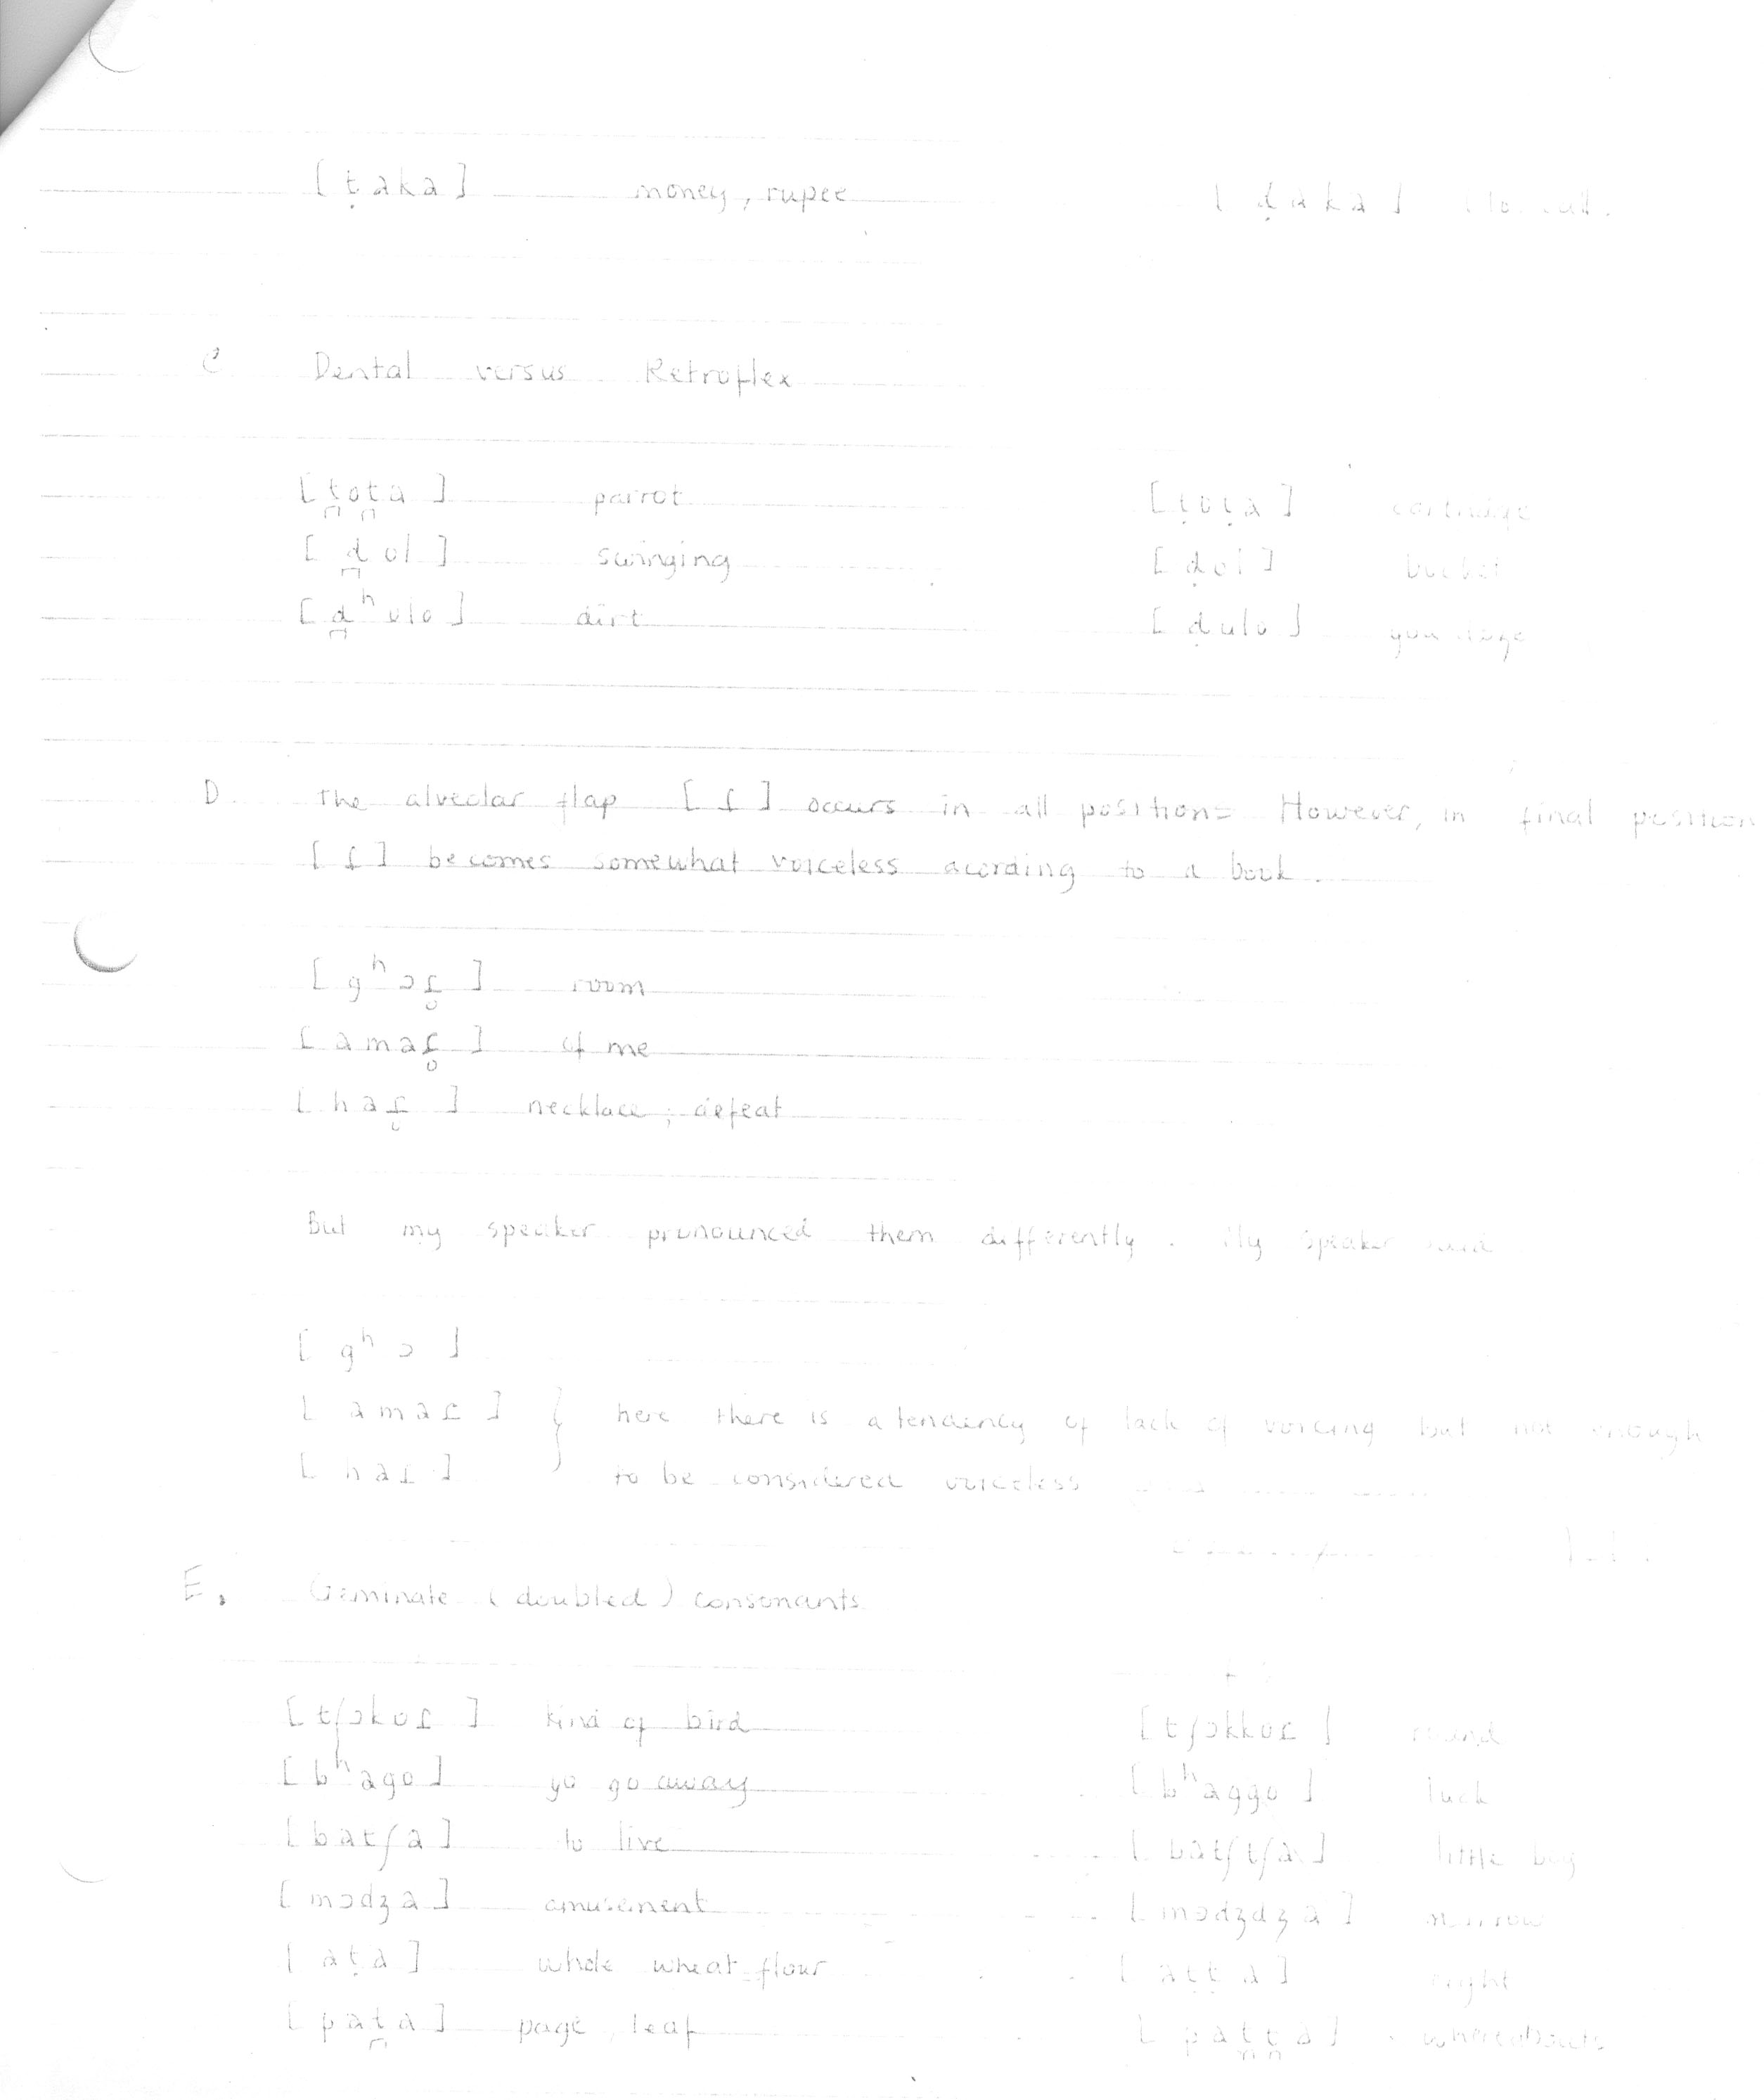 [ṭaka] money, rupee [ḍaka] to call.
C. Dental versus Retroflex
[t̪ot̪a] parrot [ṭoṭa] cartridge
[d̪ol] swinging [ḍol] bucket
[d̪ʰulo] dirt [ḍulo] you doze
D. The alveolar flap [ɾ] occurs in all positions However, in final position
[ɾ] becomes somewhat voiceless acording to a book.
[gʰɔɾ̥] room
[amaɾ̥] of me
[haɾ̥] necklace, defeat
But my speaker pronounced them differently. My speaker said
[gʰɔ]
[amaɾ] } here there is a tendency of lack of voicing but not enough
[haɾ] to be considered voiceless
E. Geminate (doubled) consonants
[tʃɔkoɾ] kind of bird [tʃɔkkoɾ] round
[bʰago] yo go away [bʰaggo] luck
[batʃa] to live [batʃtʃa] little boy
[mɔdʒa] amusement [mɔdʒdʒa] marrow
[aṭa] whole wheat flour [aṭṭa] eight
[pat̪a] page, leaf [pat̪t̪a] whereabouts